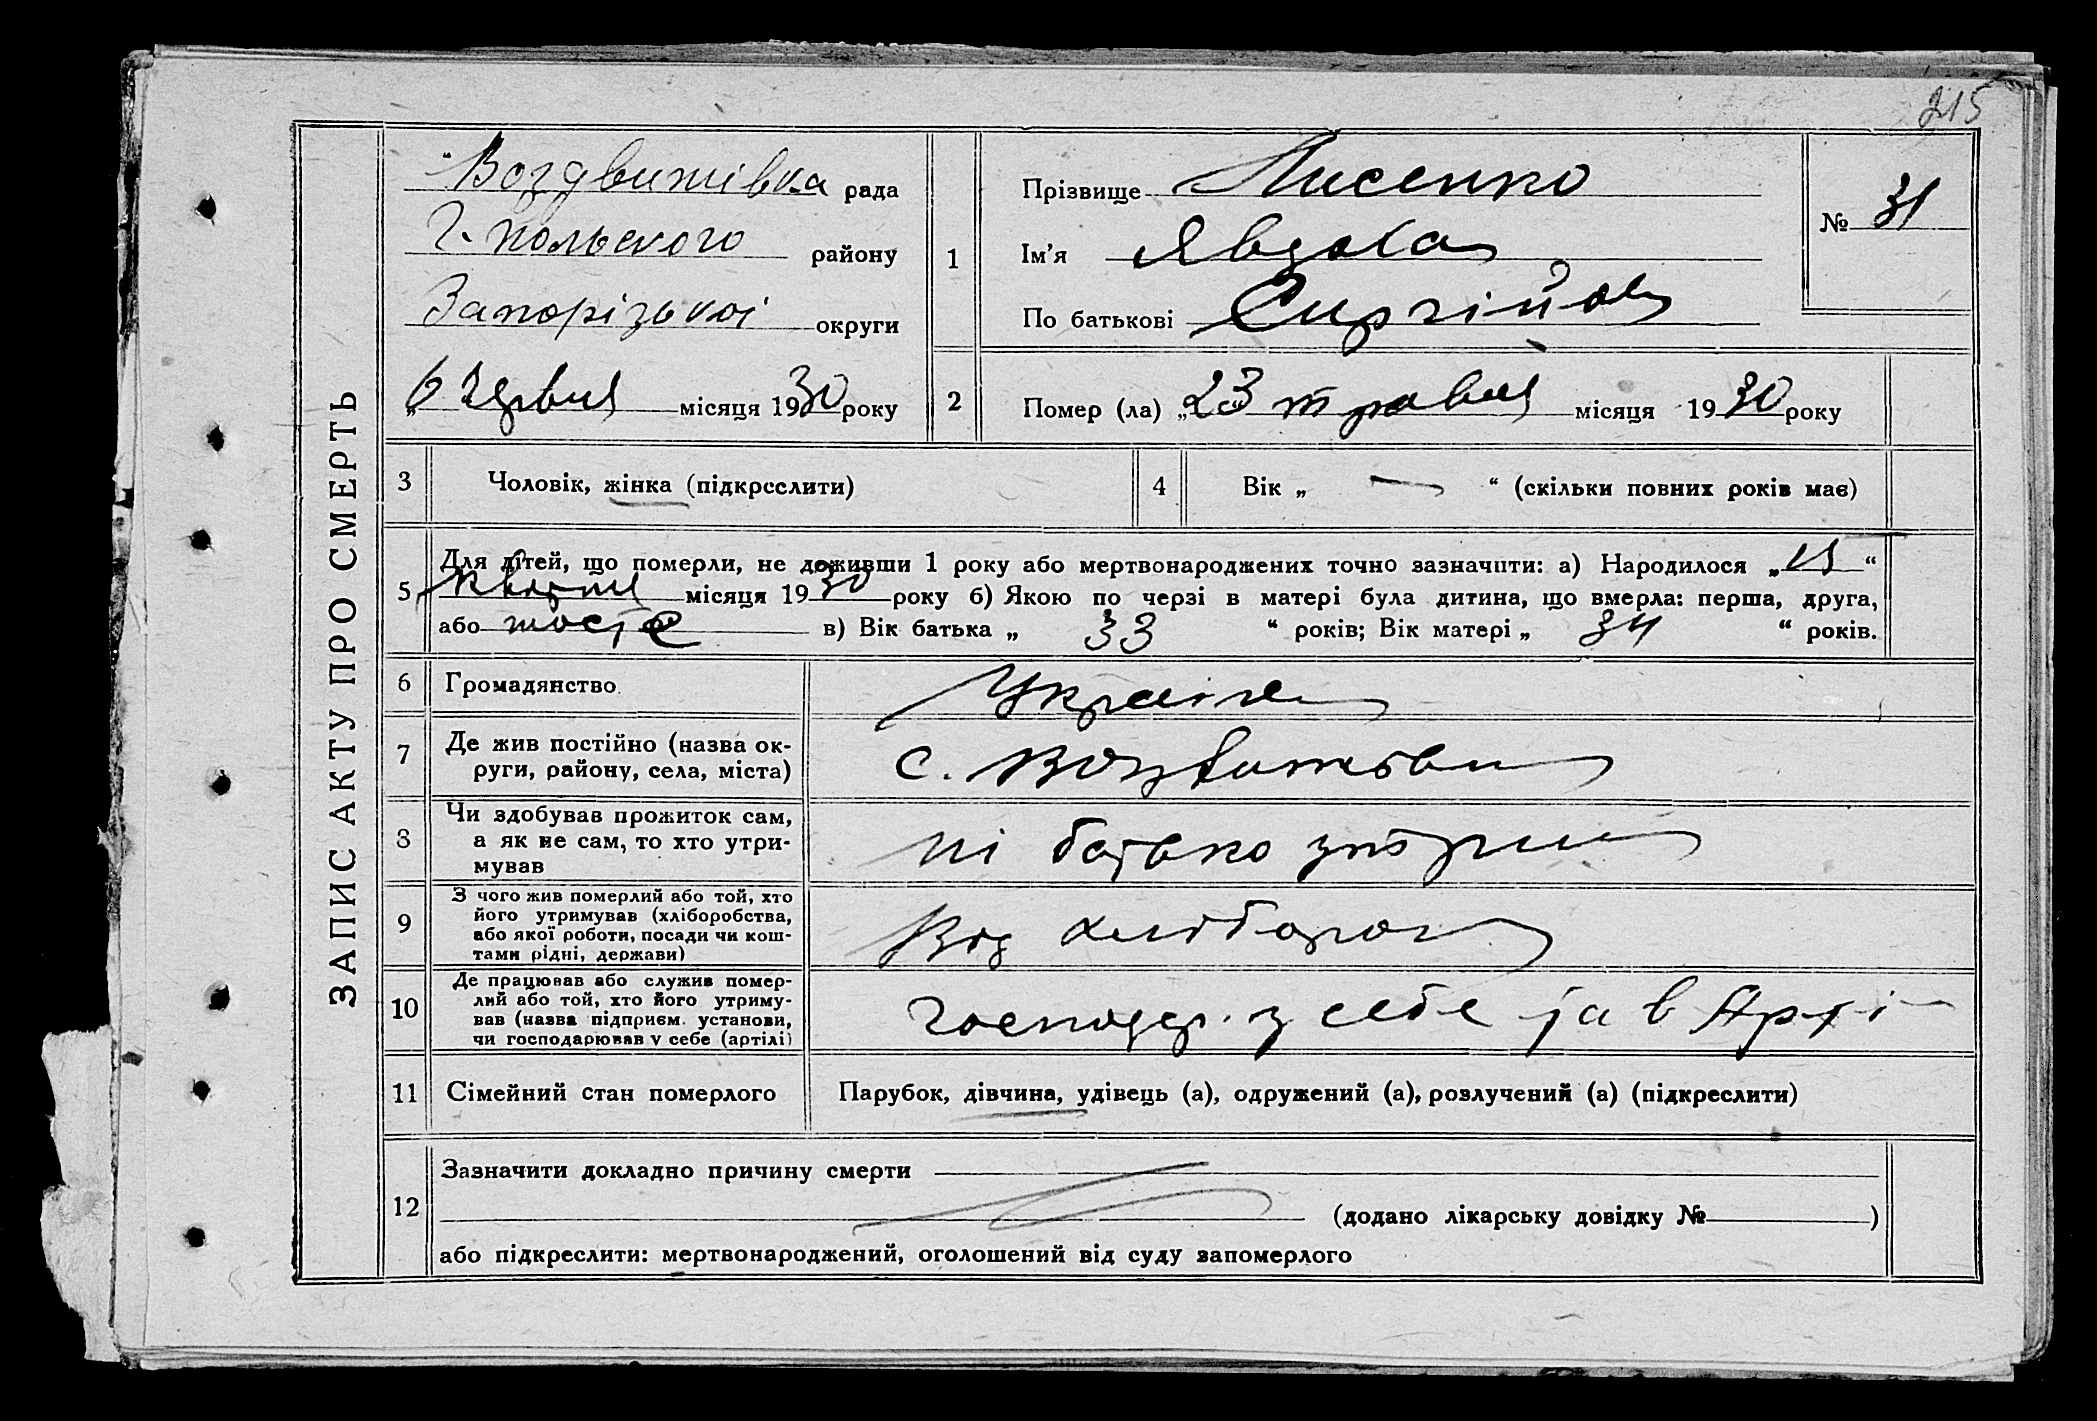 215
ЗАПИС АКТУ ПРО СМЕРТЬ
Воздвижівка рада
Г. Польского району
Запорізької округи
„6 червня місяця 1930 року
1
Прізвище Лисенко
Ім'я Явдоха
По батькові Сиргійов
№ 31
2
Помер (ла) „23“ травня місяця 1930 року
3
Чоловік, жінка (підкреслити)
4
Вік „ — “ (скільки повних років має)
5
Для дітей, що померли, не доживши 1 року або мертвонароджених точно зазначити: а) Народилося „15“
квітня місяця 1930 року б) Якою по черзі в матері була дитина, що вмерла: перша, друга,
або шосте в) Вік батька „ 33 “ років; Вік матері „ 34 “ років.
6
Громадянство
Україн
7
Де жив постійно (назва ок-
руги, району, села, міста)
с. Воздвижівка
8
Чи здобував прожиток сам,
а як не сам, то хто утри-
мував
ні батько
9
З чого жив померлий або той, хто
його утримував (хліборобства,
або якої роботи, посади чи кош-
тами рідні, держави)
Від хлібороб
10
Де працював або служив помер-
лий або той, хто його утриму-
вав (назва підприєм. установи,
чи господарював у себе (артілі)
господар. у себе та в Арті
11
Сімейний стан померлого
Парубок, дівчина, удівець (а), одружений (а), розлучений (а) (підкреслити)
12
Зазначити докладно причину смерти
(додано лікарську довідку № )
або підкреслити: мертвонароджений, оголошений від суду запомерлого